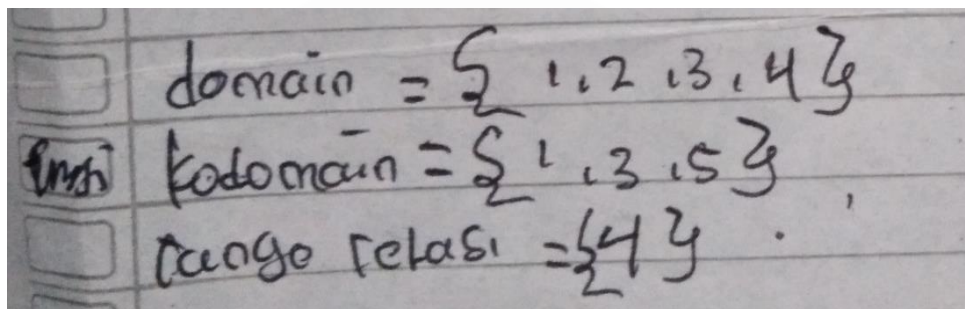 domain = { 1, 2, 3, 4 }
kodomain = { 1, 3, 5 }
range relasi = { 4 }